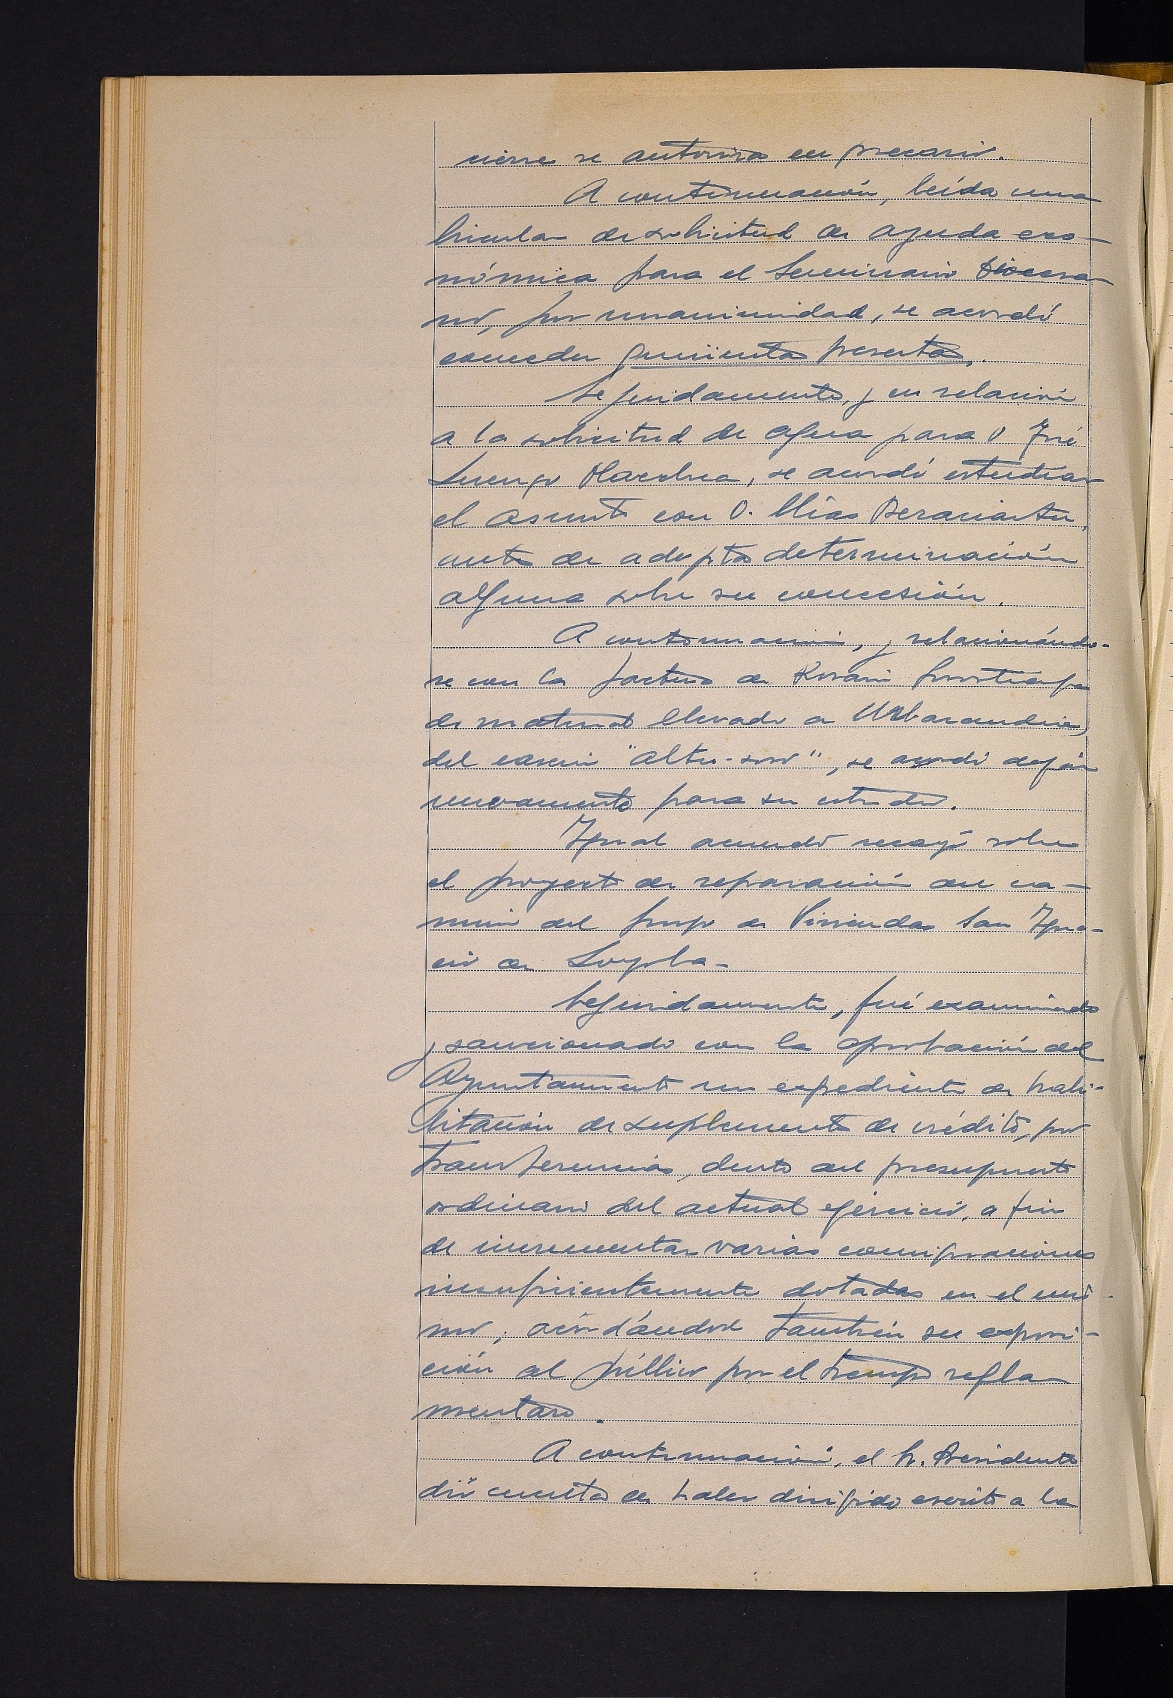 cierre se autoriza en precario.
A continuación, leída una
Circular de solicitud de ayuda eco-
nómica para el Seminario Diocesa-
no, por unanimidad, se acordó
conceder quinientas pesetas.
Seguidamente, y en relación
a la solicitud de agua para D. José
Luengo Olacechea, se acordó estudiar
el asunto con D. Elías
antes de adoptar determinación
alguna sobre su concesión.
A continuación, y relacionándo-
se con la factura de Rosario
de material llevado a
del caserío "Altu-soro", se acordó dejar
nuevamente para su estudio.
Igual acuerdo recayó sobre
el proyecto de reparación del ca-
mino del Grupo de Viviendas San Igna-
cio de Loyola.
Seguidamente, fué examinado
y sancionado con la aprobación del
Ayuntamiento un expediente de habi-
litación de suplemento de crédito, por
transferencias, dentro del presupuesto
ordinario del actual ejercicio, a fin
de incrementar varias consignaciones
insuficientemente dotadas en el mis-
mo; acordándose también su exposi-
ción al público por el tiempo regla-
mentario.
A continuación, el Sr. Presidente
dió cuenta de haber dirigido escrito a la